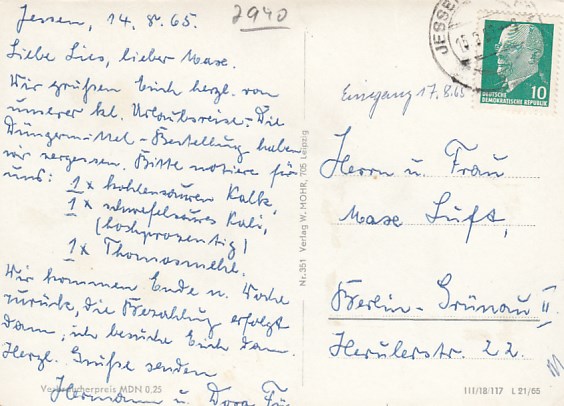 Jessen, 14.8.65.
2940
Liebe Lies, lieber Max.
Wir grüßen Euch herzl. von
unserer kl. Urlaubsreise. Die
Düngermittel-Bestellung haben
wir vergessen. Bitte notiere für
uns: 1 x kohlensauren Kalk,
1 x schwefelsaures Kali,
(hochprozentig)
1 x Thomasmehl.
Wir kommen Ende n. Woche
zurück, die Bezahlung erfolgt
dann, ich besuche Euch dann.
Herzl. Grüße senden
Hermann u. Dora
Verbraucherpreis MDN 0,25
Nr. 351 Verlag W. MOHR, 705 Leipzig
JESSE
10
DEUTSCHE
DEMOKRATISCHE REPUBLIK
Eingang 17.8.65
Herrn u. Frau
Max Luft,
Berlin-Grünau II
Herulerstr. 22.
III/18/117 L 21/65